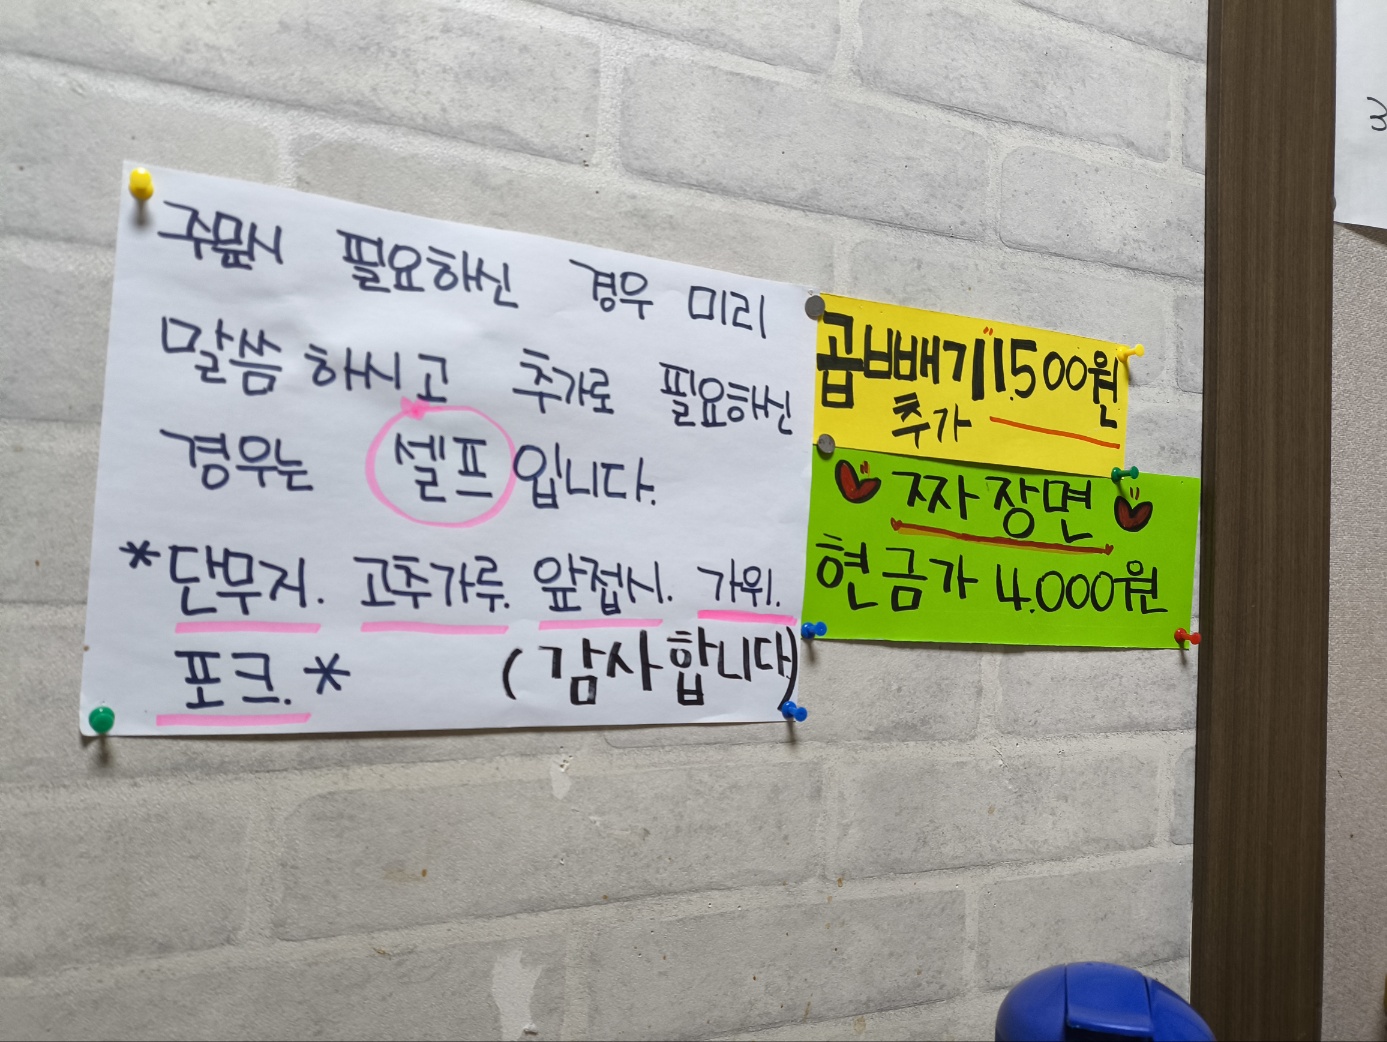 주문시 필요하신 경우 미리
말씀 하시고 추가로 필요하신
경우는 셀프 입니다.
*단무지. 고추가루. 앞접시. 가위.
포크.* (감사합니다)
곱빼기 1.500원
추가
짜장면
현금가 4.000원